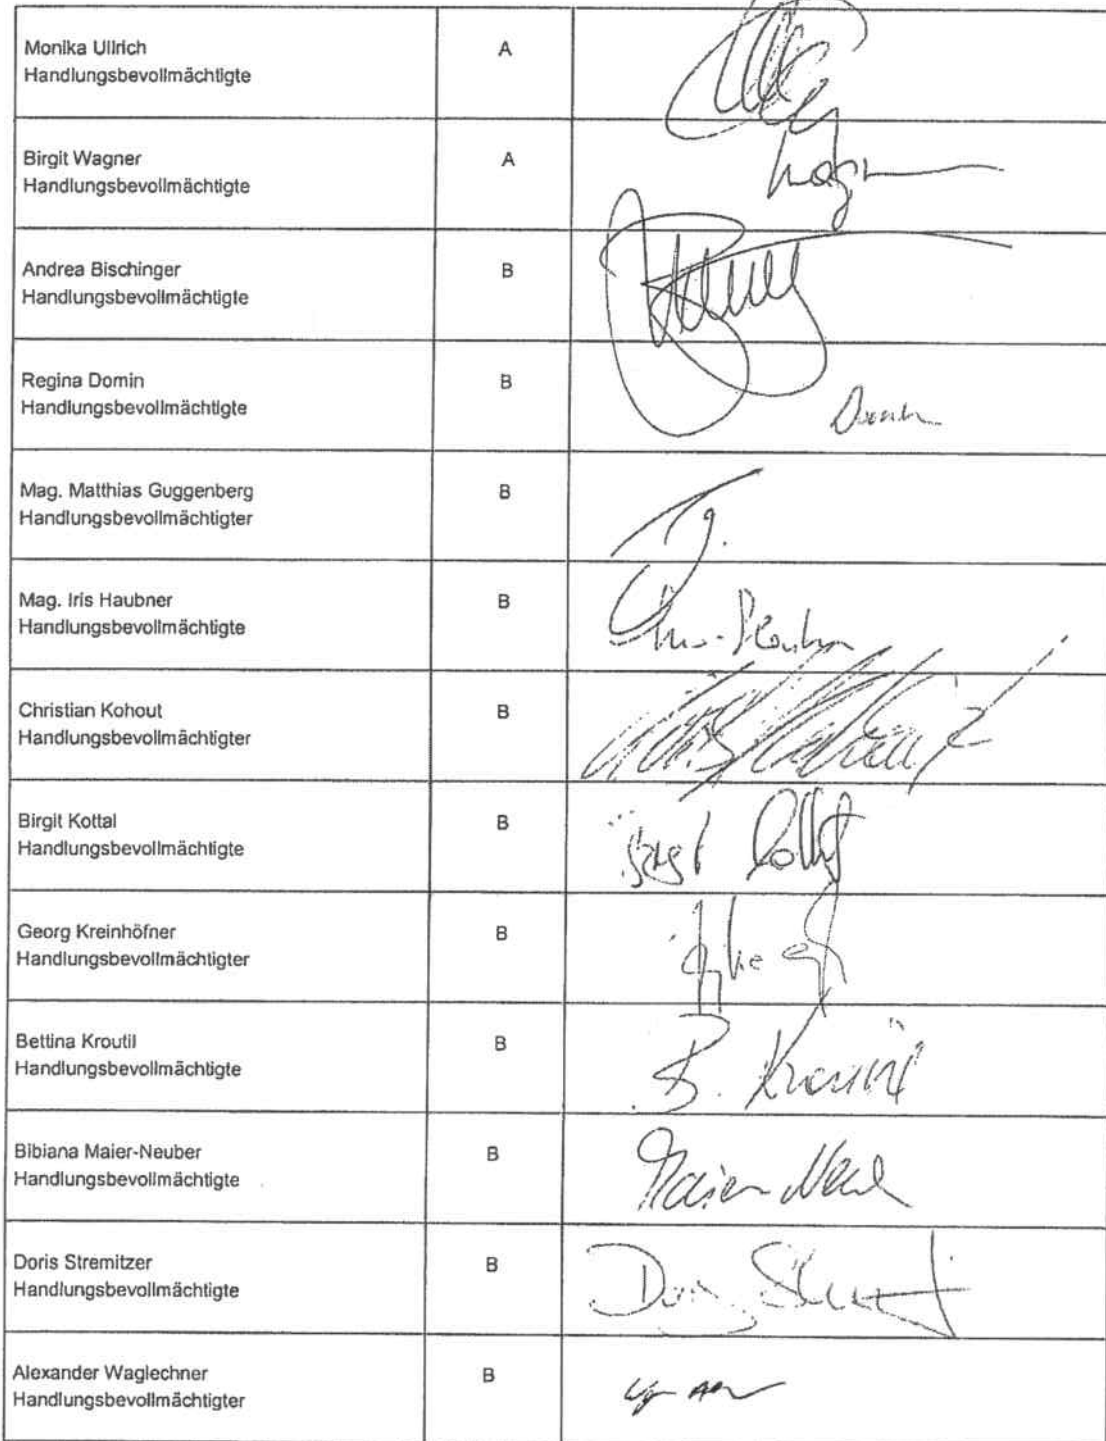 Monika Ullrich
Handlungsbevollmächtigte
A
Birgit Wagner
Handlungsbevollmächtigte
A
Wagn
Andrea Bischinger
Handlungsbevollmächtigte
B
Regina Domin
Handlungsbevollmächtigte
B
Domin
Mag. Matthias Guggenberg
Handlungsbevollmächtigter
B
Mag. Iris Haubner
Handlungsbevollmächtigte
B
Christian Kohout
Handlungsbevollmächtigter
B
Birgit Kottal
Handlungsbevollmächtigte
B
Georg Kreinhöfner
Handlungsbevollmächtigter
B
Bettina Kroutil
Handlungsbevollmächtigte
B
B. Kroutil
Bibiana Maier-Neuber
Handlungsbevollmächtigte
B
Doris Stremitzer
Handlungsbevollmächtigte
B
Alexander Waglechner
Handlungsbevollmächtigter
B